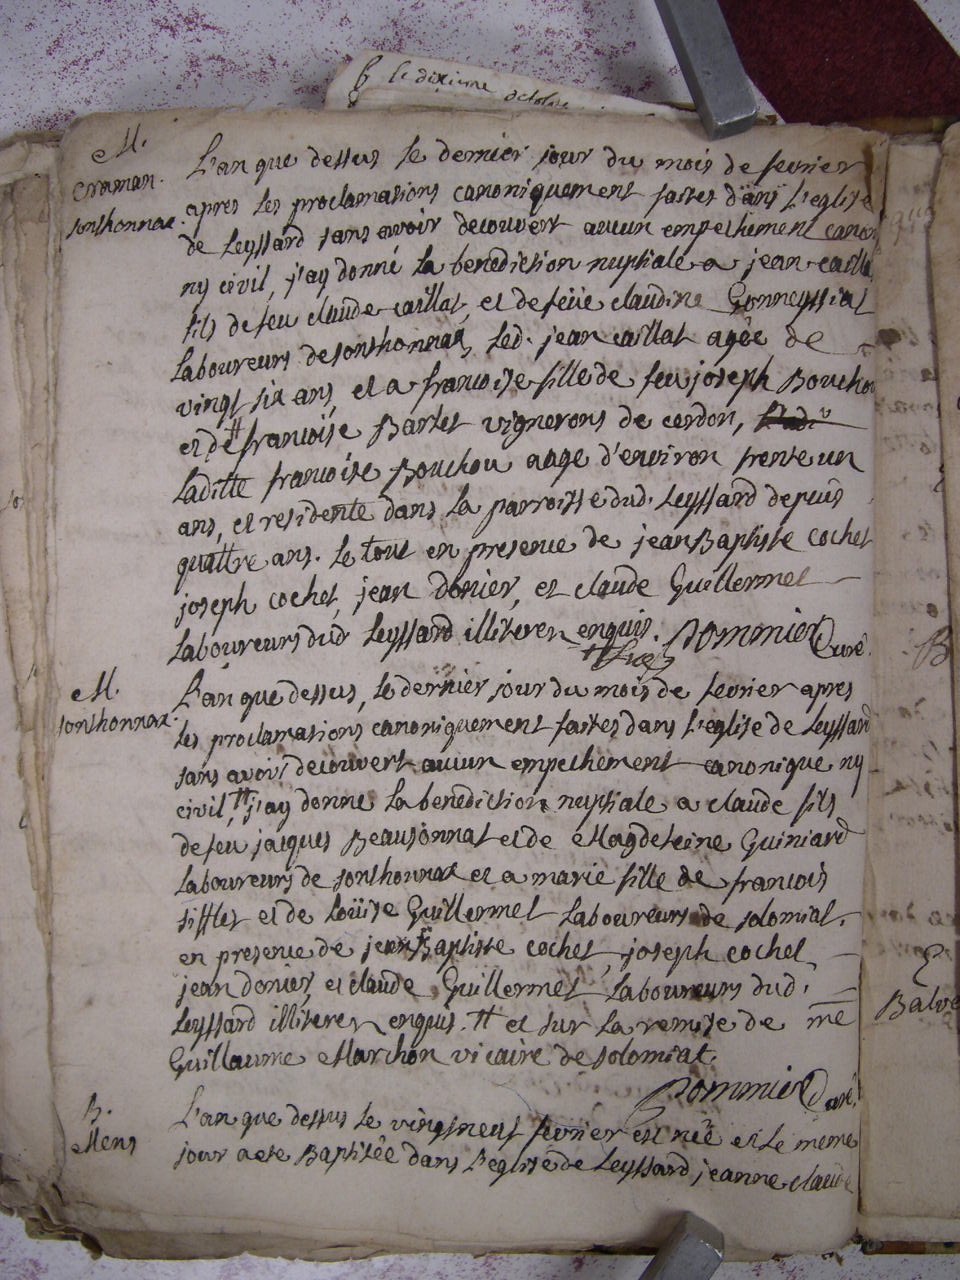 le dixieme octobre
M.
Craman.
sonthonnax.
L'an que dessus le dernier jour du mois de fevrier
apres les proclamations canoniquement faites dans l'eglise
de Leyssard sans avoir decouvert aucun empechement canon
ny civil, j'ay donné la benediction nuptiale a jean cailla
fils de feu claude caillat, et de feüe claudine Gonneyssiat
Laboureurs de sonthonnax, led. jean caillat agée de
vingt six ans, et a francoise fille de feu joseph Bouchou
et de francoise Barlet vignerons de cerdon,
Laditte francoise Bouchou aage d'environ trente un
ans, et residente dans la parroisse dud. Leyssard depuis
quattre ans. Le tout en presence de jean Baptiste cochet
joseph cochet, jean donier, et claude Guillermet
Laboureurs dud Leyssard illiterez enquis. Pommier Curé.
M.
sonthonnax.
L'an que dessus, le dernier jour du mois de fevrier apres
les proclamations canoniquement faites dans l'eglise de Leyssard
sans avoir decouvert aucun empechement canonique ny
civil, j'ay donne la benediction nuptiale a claude fils
de feu jacques Beausonnat et de Magdeleine Guiniard
Laboureurs de sonthonnax et a marie fille de francois
sifflet et de Loüise Guillermet Laboureurs de solomiat.
en presence de jean Baptiste cochet, joseph cochet,
jean donier, et claude Guillermet Laboureurs dud.
Leyssard illiterez enquis. et sur la remise de me
Guillaume Marchon vicaire de solomiat.
Pommier Curé.
B.
Mens
L'an que dessus le vingtneuf fevrier est née et le meme
jour a ete Baptisée dans l'eglise de Leyssard, jeanne claude
Balve